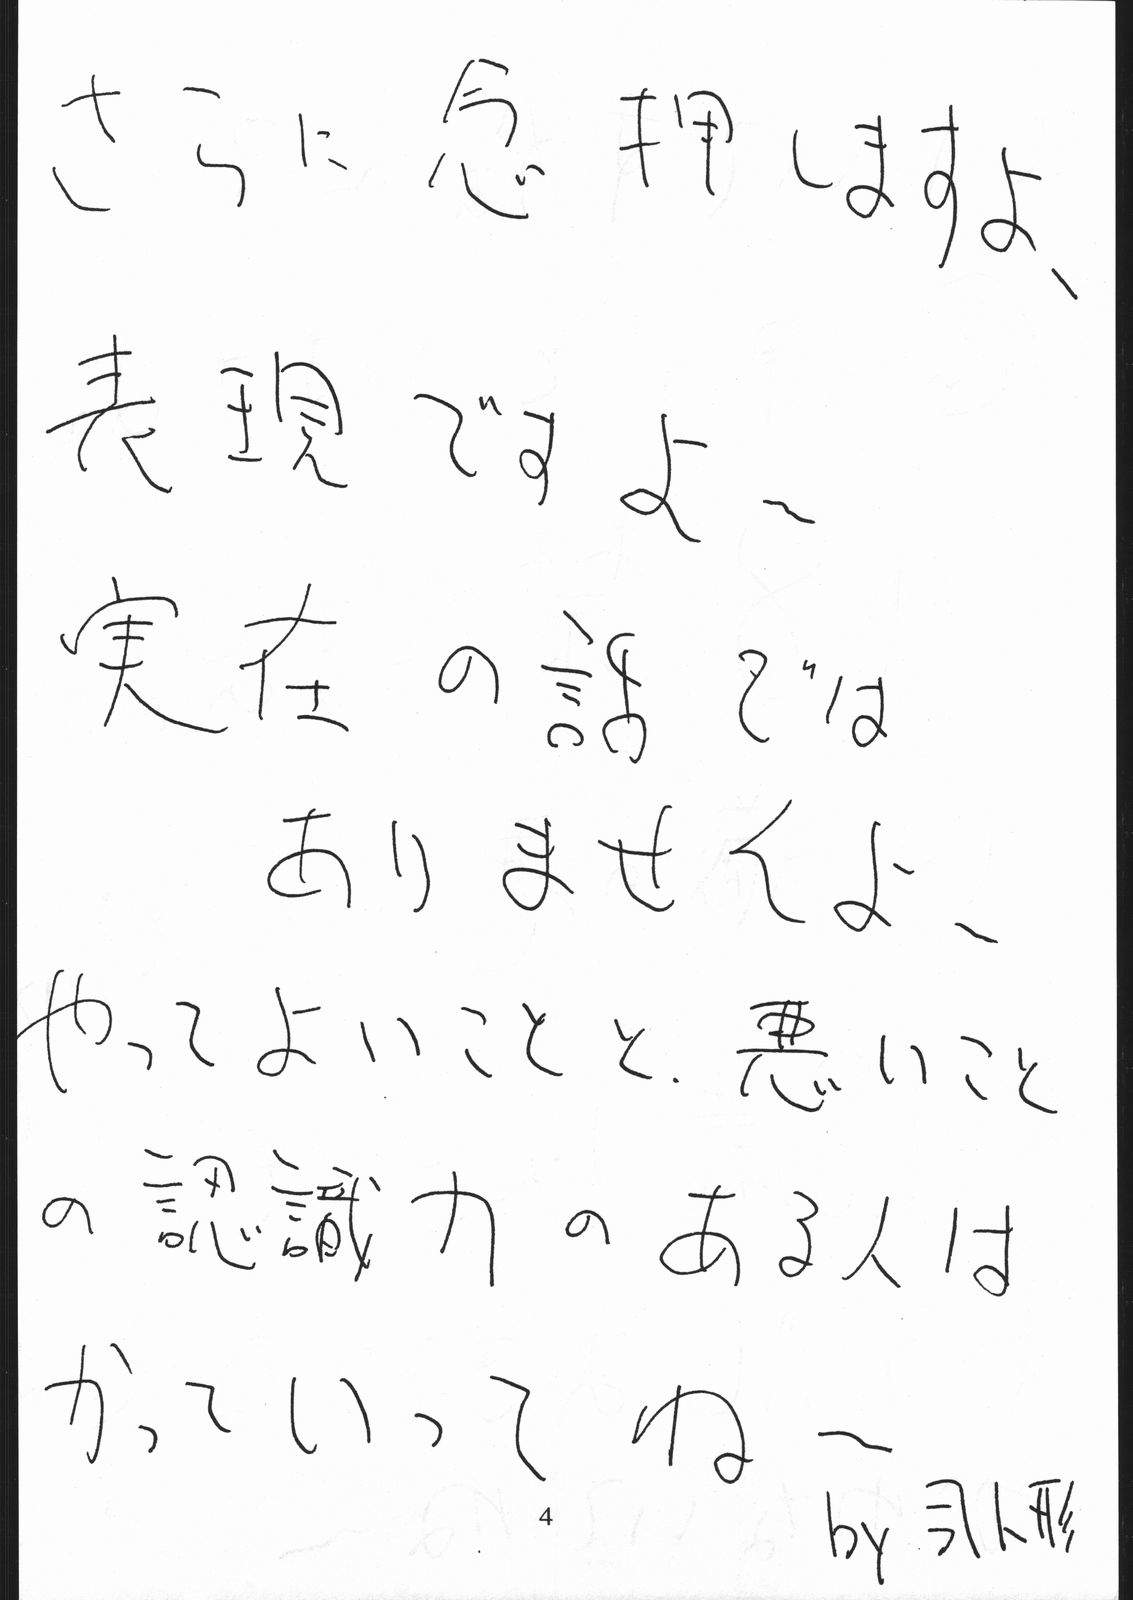 さらに念押しますよ、
表現ですよ〜
実在の話では
ありませんよ、
やってよいことと、悪いこと
の認識力のある人は
かっていってね〜
4
by 弓人形